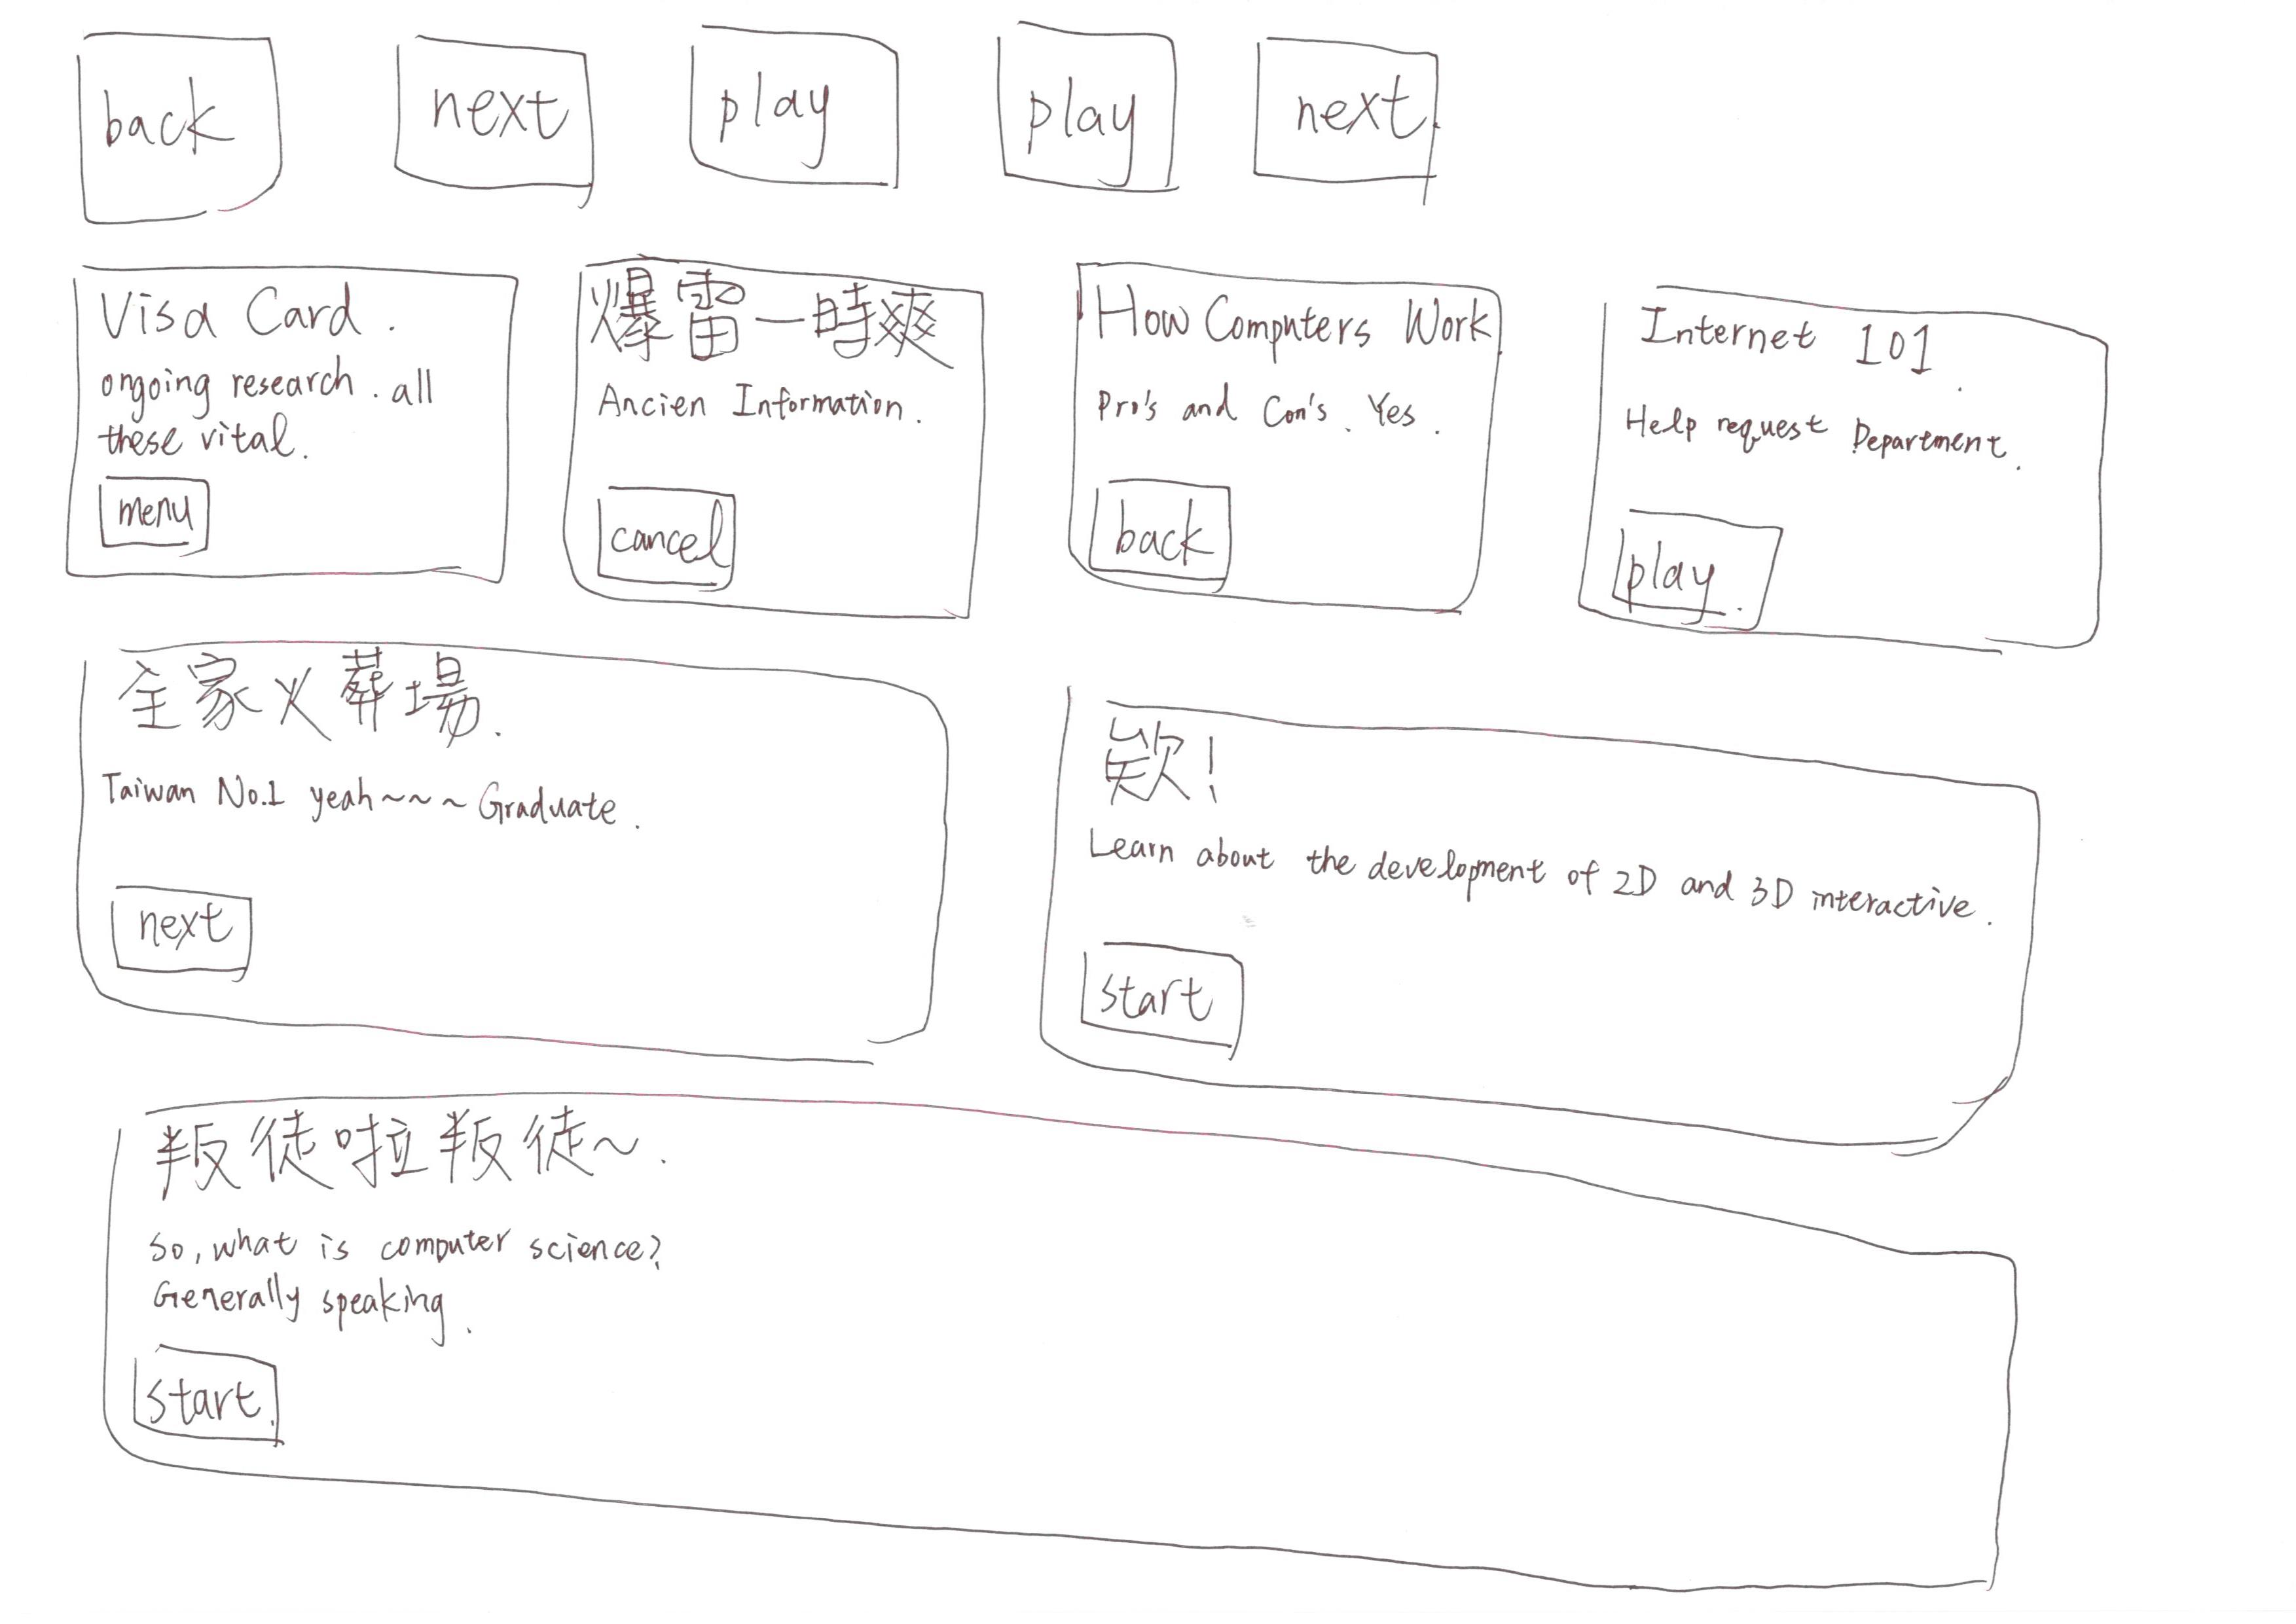 back
next
play
play
next
Visa Card.
ongoing research. all
these vital.
menu
爆雷一時爽
Ancien Information.
cancel
How Computers Work
Pro's and Con's. Yes.
back
Internet 101.
Help request Department.
play.
全家火葬場.
Taiwan No.1 yeah~~~Graduate.
next
欸!
Learn about the development of 2D and 3D interactive.
start
叛徒啦叛徒~.
So, what is computer science?
Generally speaking.
start.